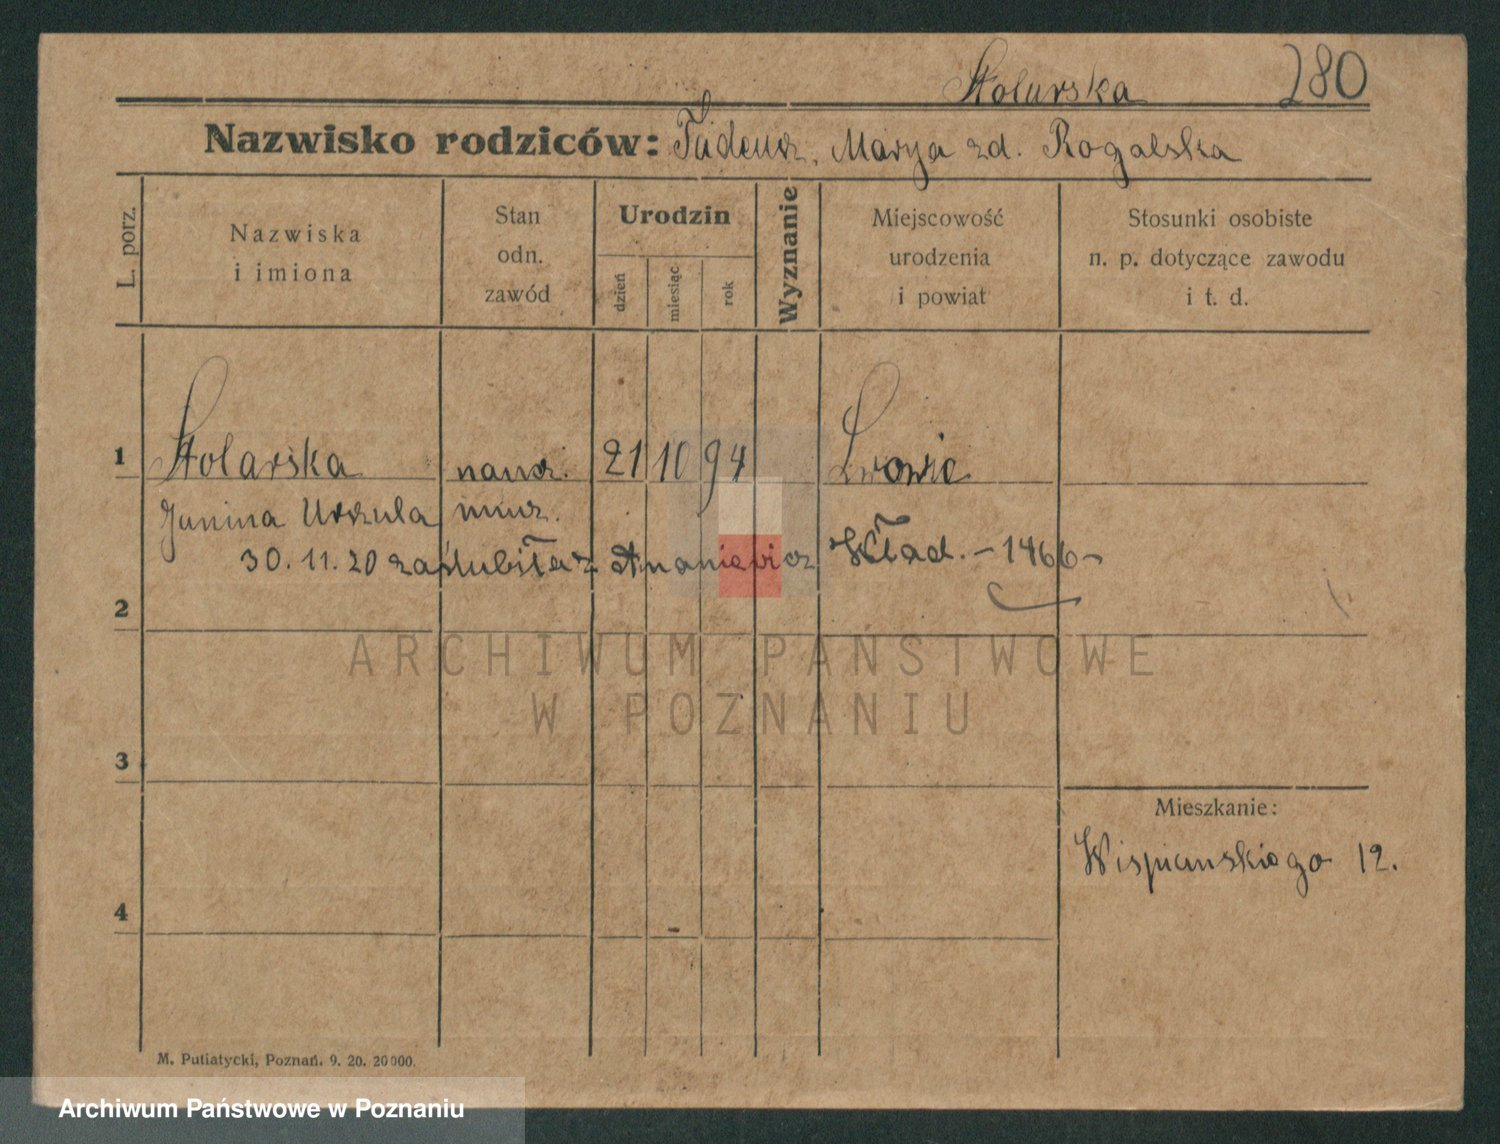 Stolarska 280
Nazwisko rodziców: Tadeusz, Marya zd. Rogalska
L. porz.
Nazwiska
i imiona
Stan
odn.
zawód
Urodzin
dzień
miesiąc
rok
Wyznanie
Miejscowość
urodzenia
i powiat
Stosunki osobiste
n. p. dotyczące zawodu
i t. d.
1 Stolarska naucz. 21 10 94 Lwowie
Janina Urszula muz.
30.11.20 zaślubiła z Ananiewicz Wład. - 1466 -
2
ARCHIWUM PAŃSTWOWE
W POZNANIU
3
Mieszkanie:
Wispianskiego 12.
4
M. Putiatycki, Poznań. 9. 20. 20000.
Archiwum Państwowe w Poznaniu